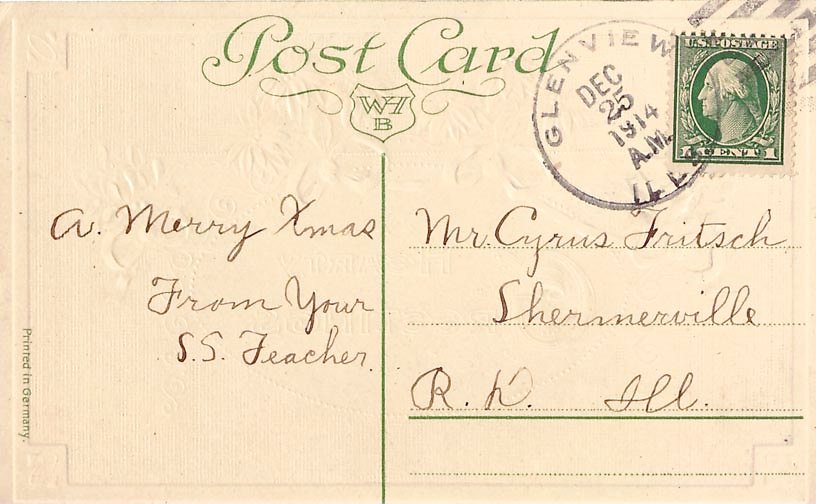 Post Card
WH
B
GLENVIEW
DEC
25
1914
A.M.
ILL.
U.S. POSTAGE
1 CENT 1
A. Merry Xmas
From Your
S.S. Teacher.
Mr. Cyrus Fritsch
Shermerville
R. D. Ill.
Printed in Germany.